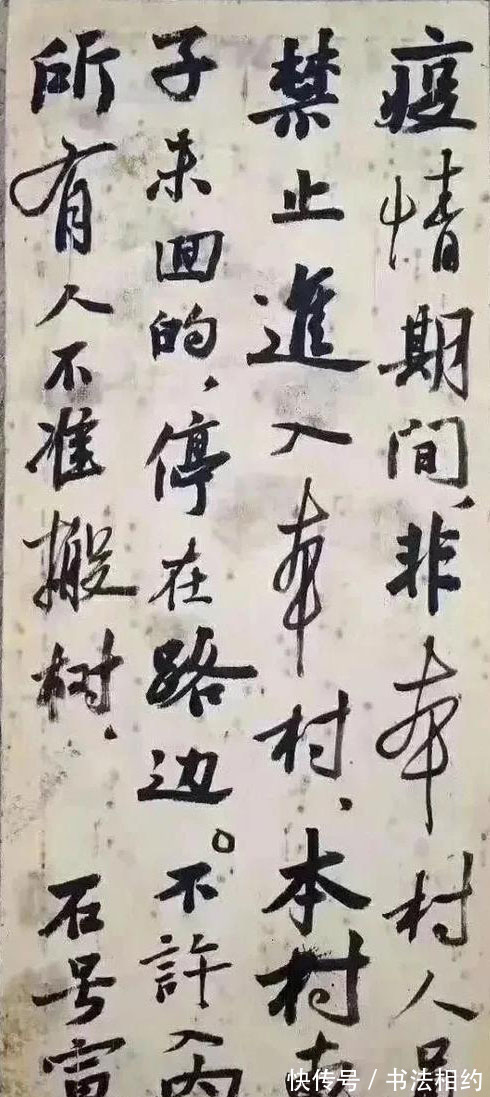 疫情期间,非本村人
禁止進入本村、本村
子未回的,停在路边。不許入内
所有人不准搬树. 石号
快传号 / 书法相约